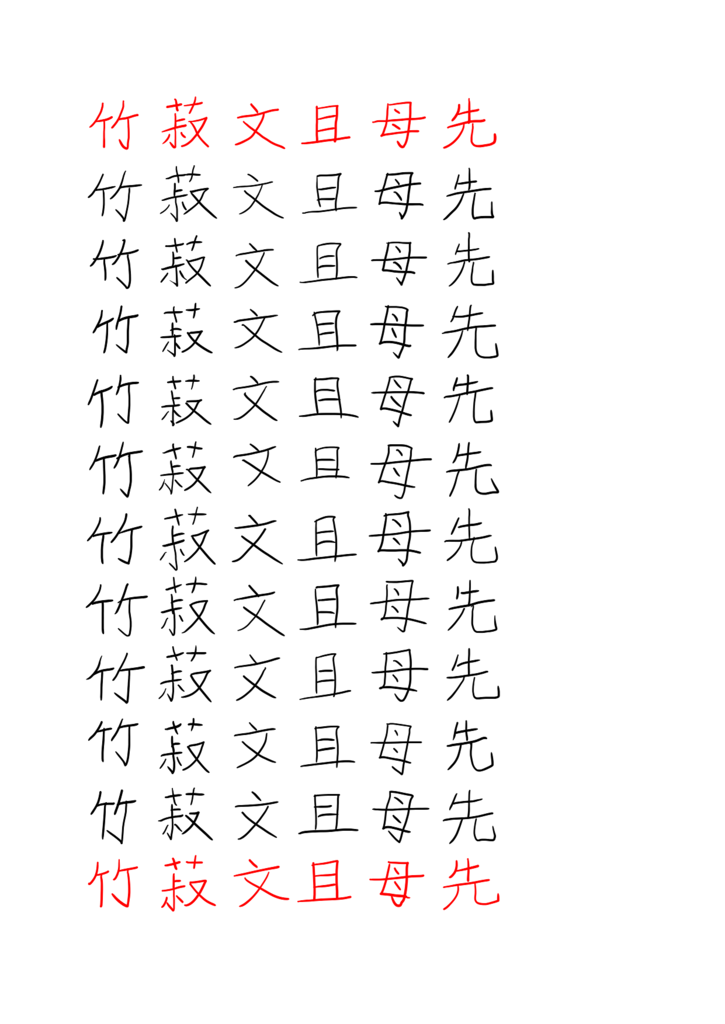 竹菽文且母先
竹菽文且母先
竹菽文且母先
竹菽文且母先
竹菽文且母先
竹菽文且母先
竹菽文且母先
竹菽文且母先
竹菽文且母先
竹菽文且母先
竹菽文且母先
竹菽文且母先